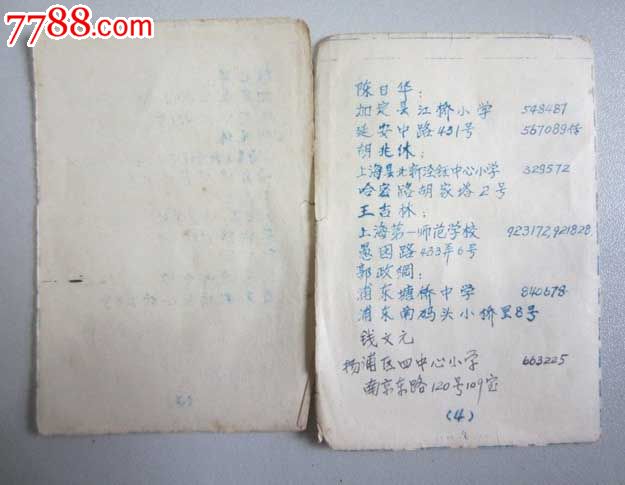 7788.com
陈日华：
加定县江桥小学 548487
延安中路431号 567089转
胡兆休：
上海县北新泾镇中心小学 329572
哈密路胡家塔2号
王吉林：
上海第一师范学校 923172,921828
愚园路433弄6号
郭政绸：
浦东塘桥中学 840678
浦东南码头小桥里8号
钱文元
杨浦区四中心小学 663225
南京东路120号109室
(4)